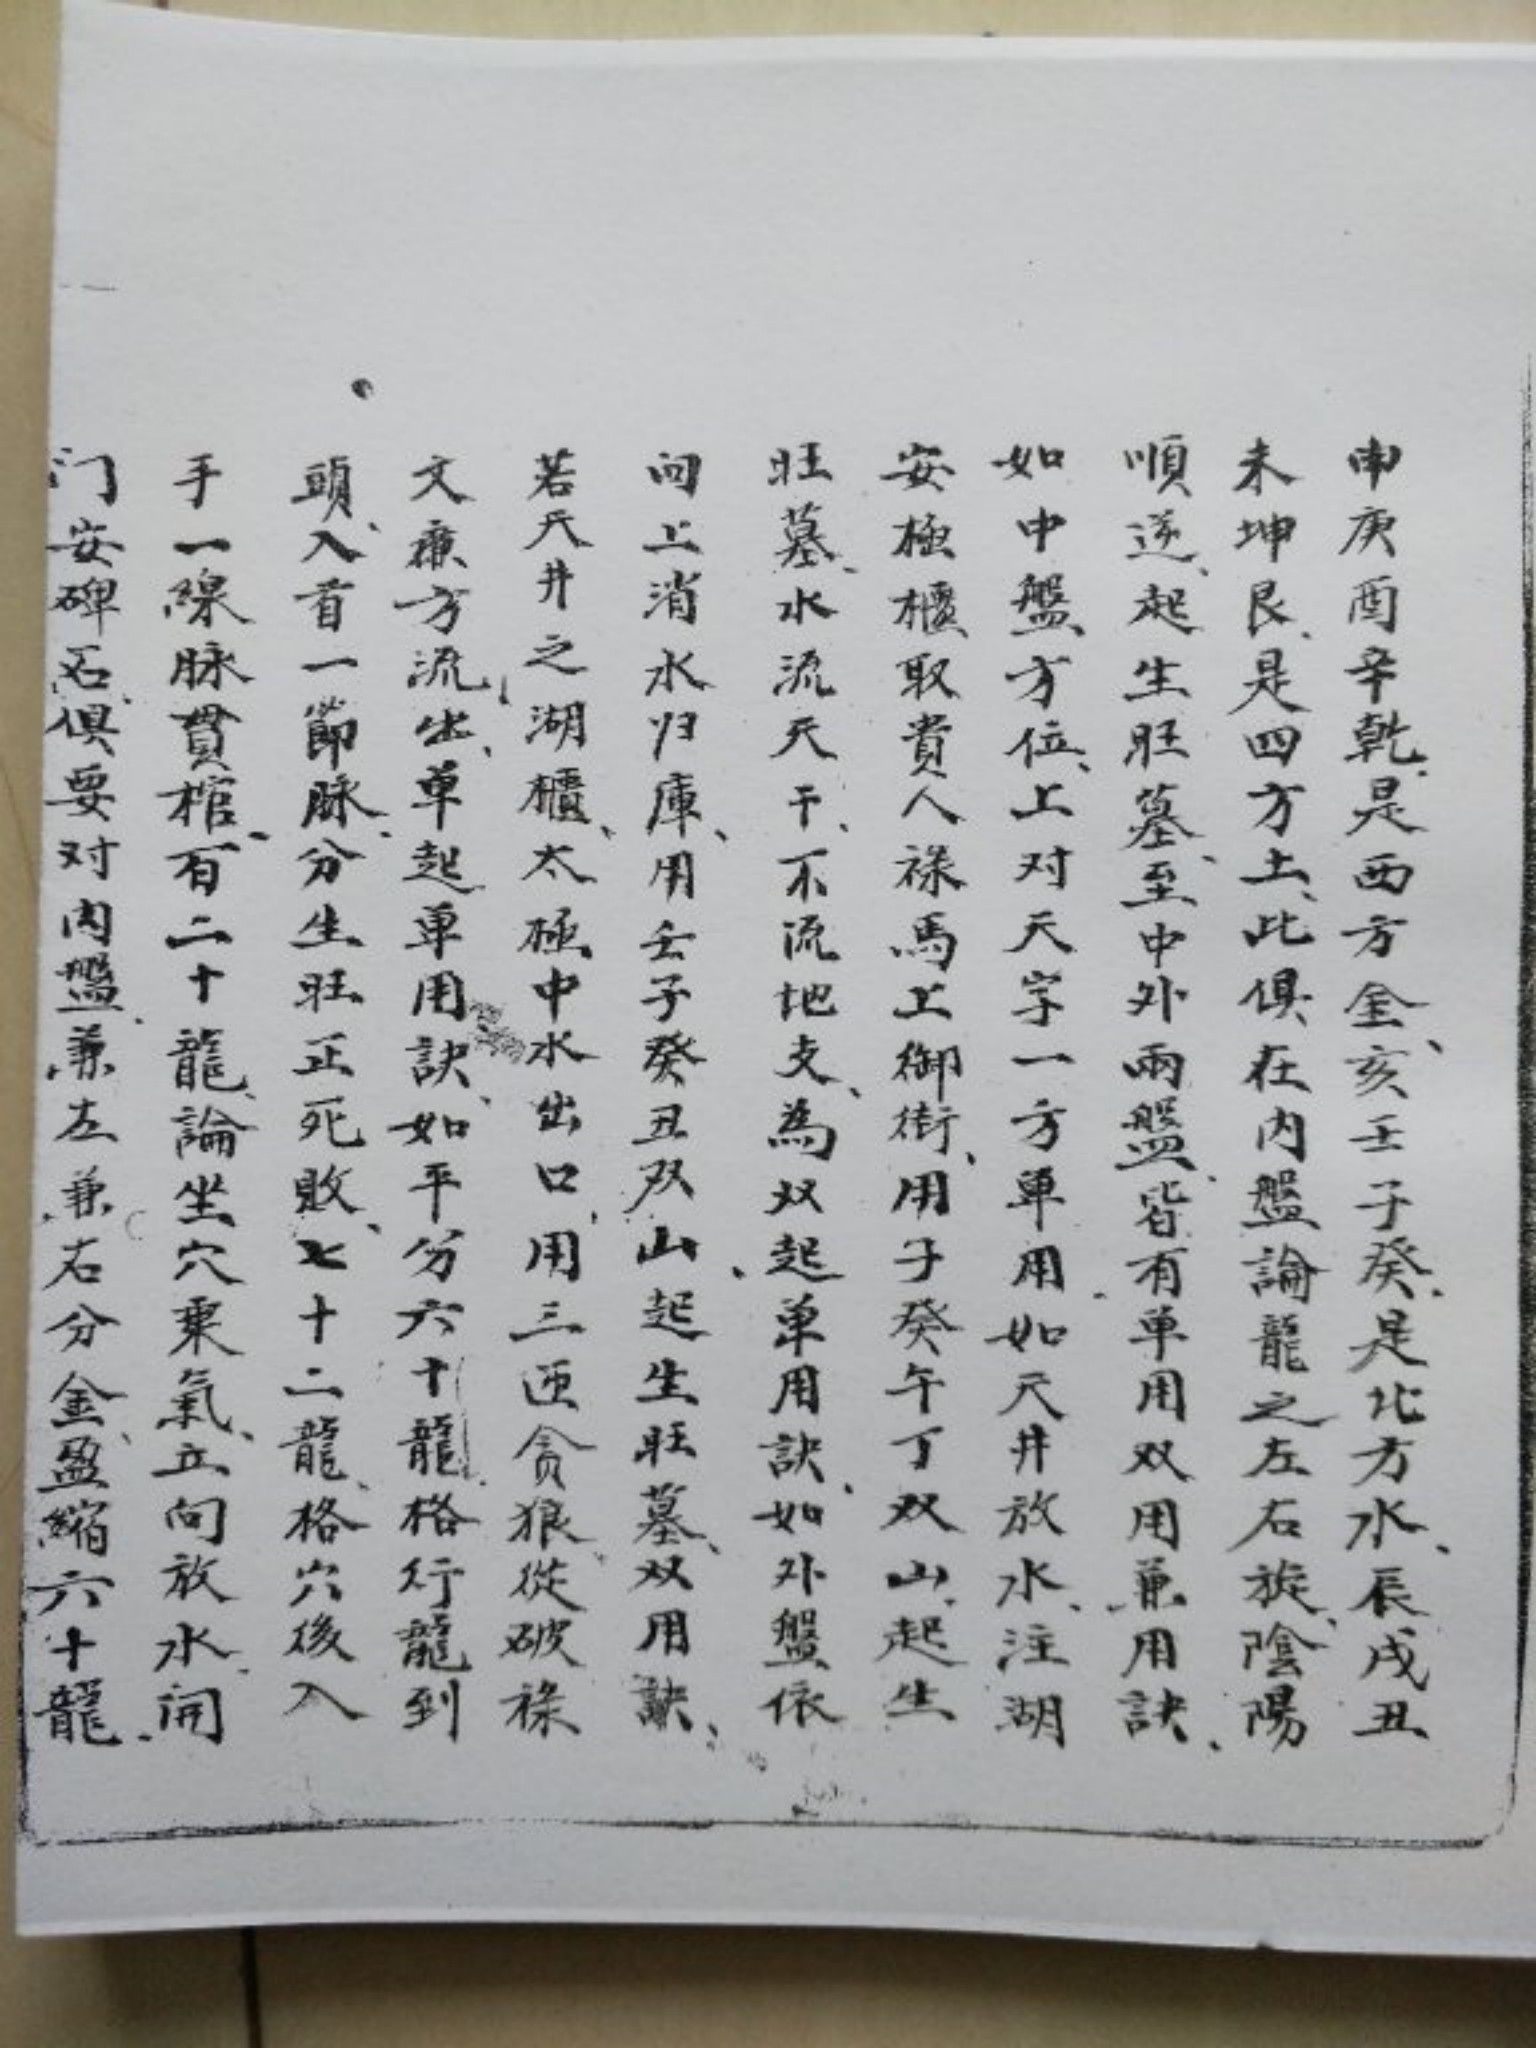 申庚酉辛乾、是西方金、亥壬子癸、是北方水、辰戌丑
未坤艮、是四方土、此俱在内盤論龍之左右旋、陰陽
順逆、起生旺墓、至中外兩盤、皆有单用双用兼用訣、
如中盤、方位、上对天字一方单用如天井放水、注湖
安極櫃取貴人祿馬上御街、用子癸午丁双山、起生
旺墓、水流天干、不流地支、為双起单用訣、如外盤依
向上消水归庫、用壬子癸丑双山、起生旺墓、双用訣、
若天井之湖櫃、太極中水出口、用三匝贪狼從破祿
文廉方流出、单起单用訣、如平分六十龍、格行龍到
頭、入首一節脉、分生旺正死敗、七十二龍、格穴後入
手一線脉貫棺、百二十龍、論坐穴乘氣、立向放水、開
门安碑石、俱要对内盤、兼左兼右分金、盈縮六十龍、